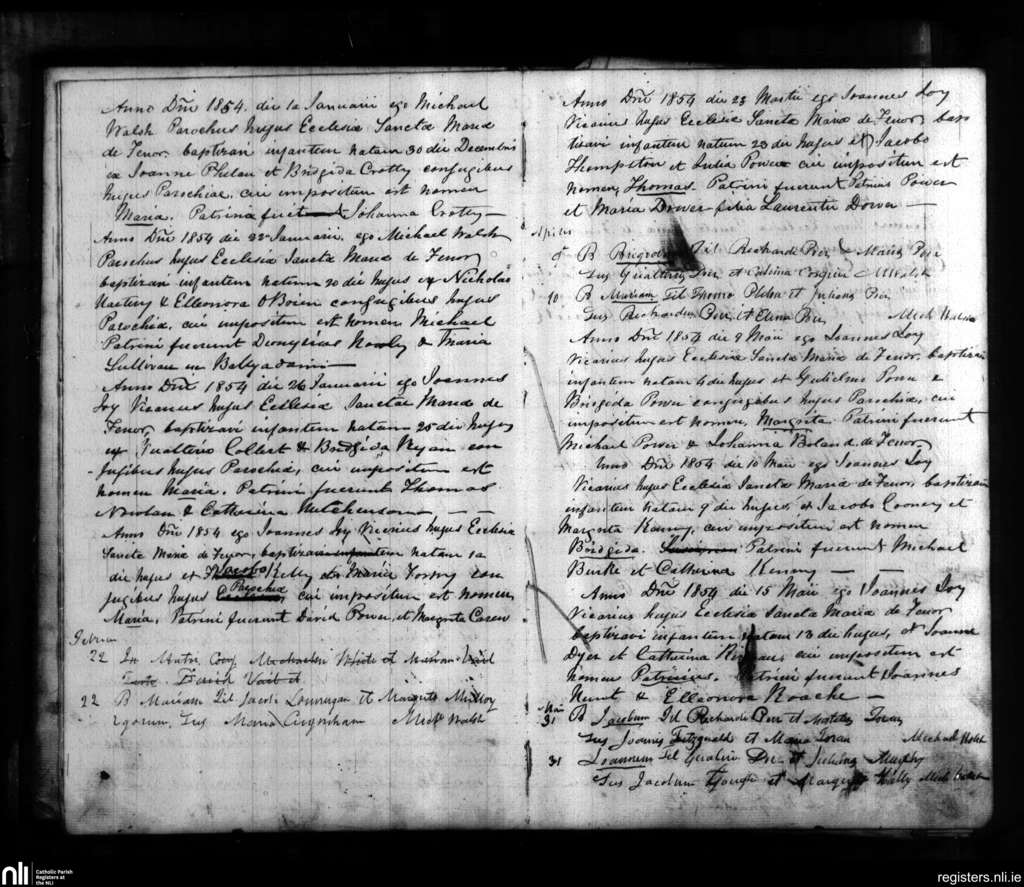 Anno Dñi 1854. die 1a Januarii ego Michael
Walsh Parochus hujus Ecclesia Sancta Maria
de Fenor, baptizavi infantem natam 30 die Decembris
ex Joanne Phelan et Bridgida Crotty conjugibus
hujus Parochiae, cui impositum est nomen
Maria. Patrina fuit Johanna Crotty —
Anno Dñi 1854 die 22 Januarii. ego Michael Walsh
Parochus hujus Ecclesia Sancta Maria de Fenor
baptizavi infantem natum 20 die hujus ex Nicholas
& Elleonora O'Brien conjugibus hujus
Parochia, cui impositum est nomen Michael
Patrini fuerunt Dionysius & Maria
Sullivan in Ballyadam
Anno Dñi 1854 die 26 Januarii ego Joannes
Joy Vicarius hujus Ecclesia Sanctae Maria de
Fenor, baptizavi infantem natam 25 die hujus
ex Gualterio Collert & Bridgida Ryan con
-jugibus hujus Parochia, cui impositum est
nomen Maria. Patrini fuerunt Thomas
& Catherina Hutchenson — —
Anno Dñi 1854 ego Joannes Joy Vicarius hujus Ecclesia
Sancta Maria de Fenor, baptizavi infantem natam 1a
die hujus et Jacobo Kelly & Maria con
jugibus hujus Parochia cui impositum est nomen
Maria. Patrini fuerunt David Power, et Margrita
22 White et Mariam
22 B Mariam Fil Jacobi et Margrita
Sus Maria Michl Walsh
Anno Dñi 1854 die 23 Martii ego Joannes Joy
Vicarius hujus Ecclesia Sancta Maria de Fenor, bap
tizavi infantem natum 23 die hujus et Jacobo
Thompston et Julia Power cui impositum est
nomen Thomas. Patrini fuerunt Patrius Power
et Maria Dower filia Laurentii Dower —
Aprilis
5 B Fil Richardi Per & Maria Per
Sus Gualterus Per et M Walsh
10 B Mariam Fil Thoma Phelan et Juliana Per
Sus Richardus Per, et Elena Per Mich Walsh
Anno Dñi 1854 die 9 Maii ego Joannes Joy
Vicarius hujus Ecclesia Sancta Maria de Fenor, baptizavi
infantem natam die hujus et Gulielmo Power &
Bridgida Power conjugibus hujus Parochia, cui
impositum est nomen, Margrita Patrini fuerunt
Michael Power & Johanna Boland de Fenor
Anno Dñi 1854 die 10 Maii ego Joannes Joy
Vicarius hujus Ecclesia Sancta Maria de Fenor, baptizavi
infantem natam 9 die hujus, et Jacobo Cooney et
Margrita Kenny, cui impositum est nomen
Bridgida. Patrini fuerunt Michael
Burke et Catherina Kenny —
Anno Dñi 1854 die 15 Maii ego Joannes Joy
Vicarius hujus Ecclesia Sancta Maria de Fenor
baptizavi infantem natum 13 die hujus, et Joanne
Dyer et Catherina cui impositum est
nomen Patricius. Patrini fuerunt Joannes
& Elleonora Roache —
Maii
31 B Jacobum Fil Richardi Per et Foran
Sus Joannis Fitzgerald et Maria Foran Michael Walsh
31 Joannem Fil Gualteri Per et Juliana Murphy
Sus Jacobum Gough et Mich Walsh
nli Catholic Parish
Registers at
the NLI
registers.nli.ie